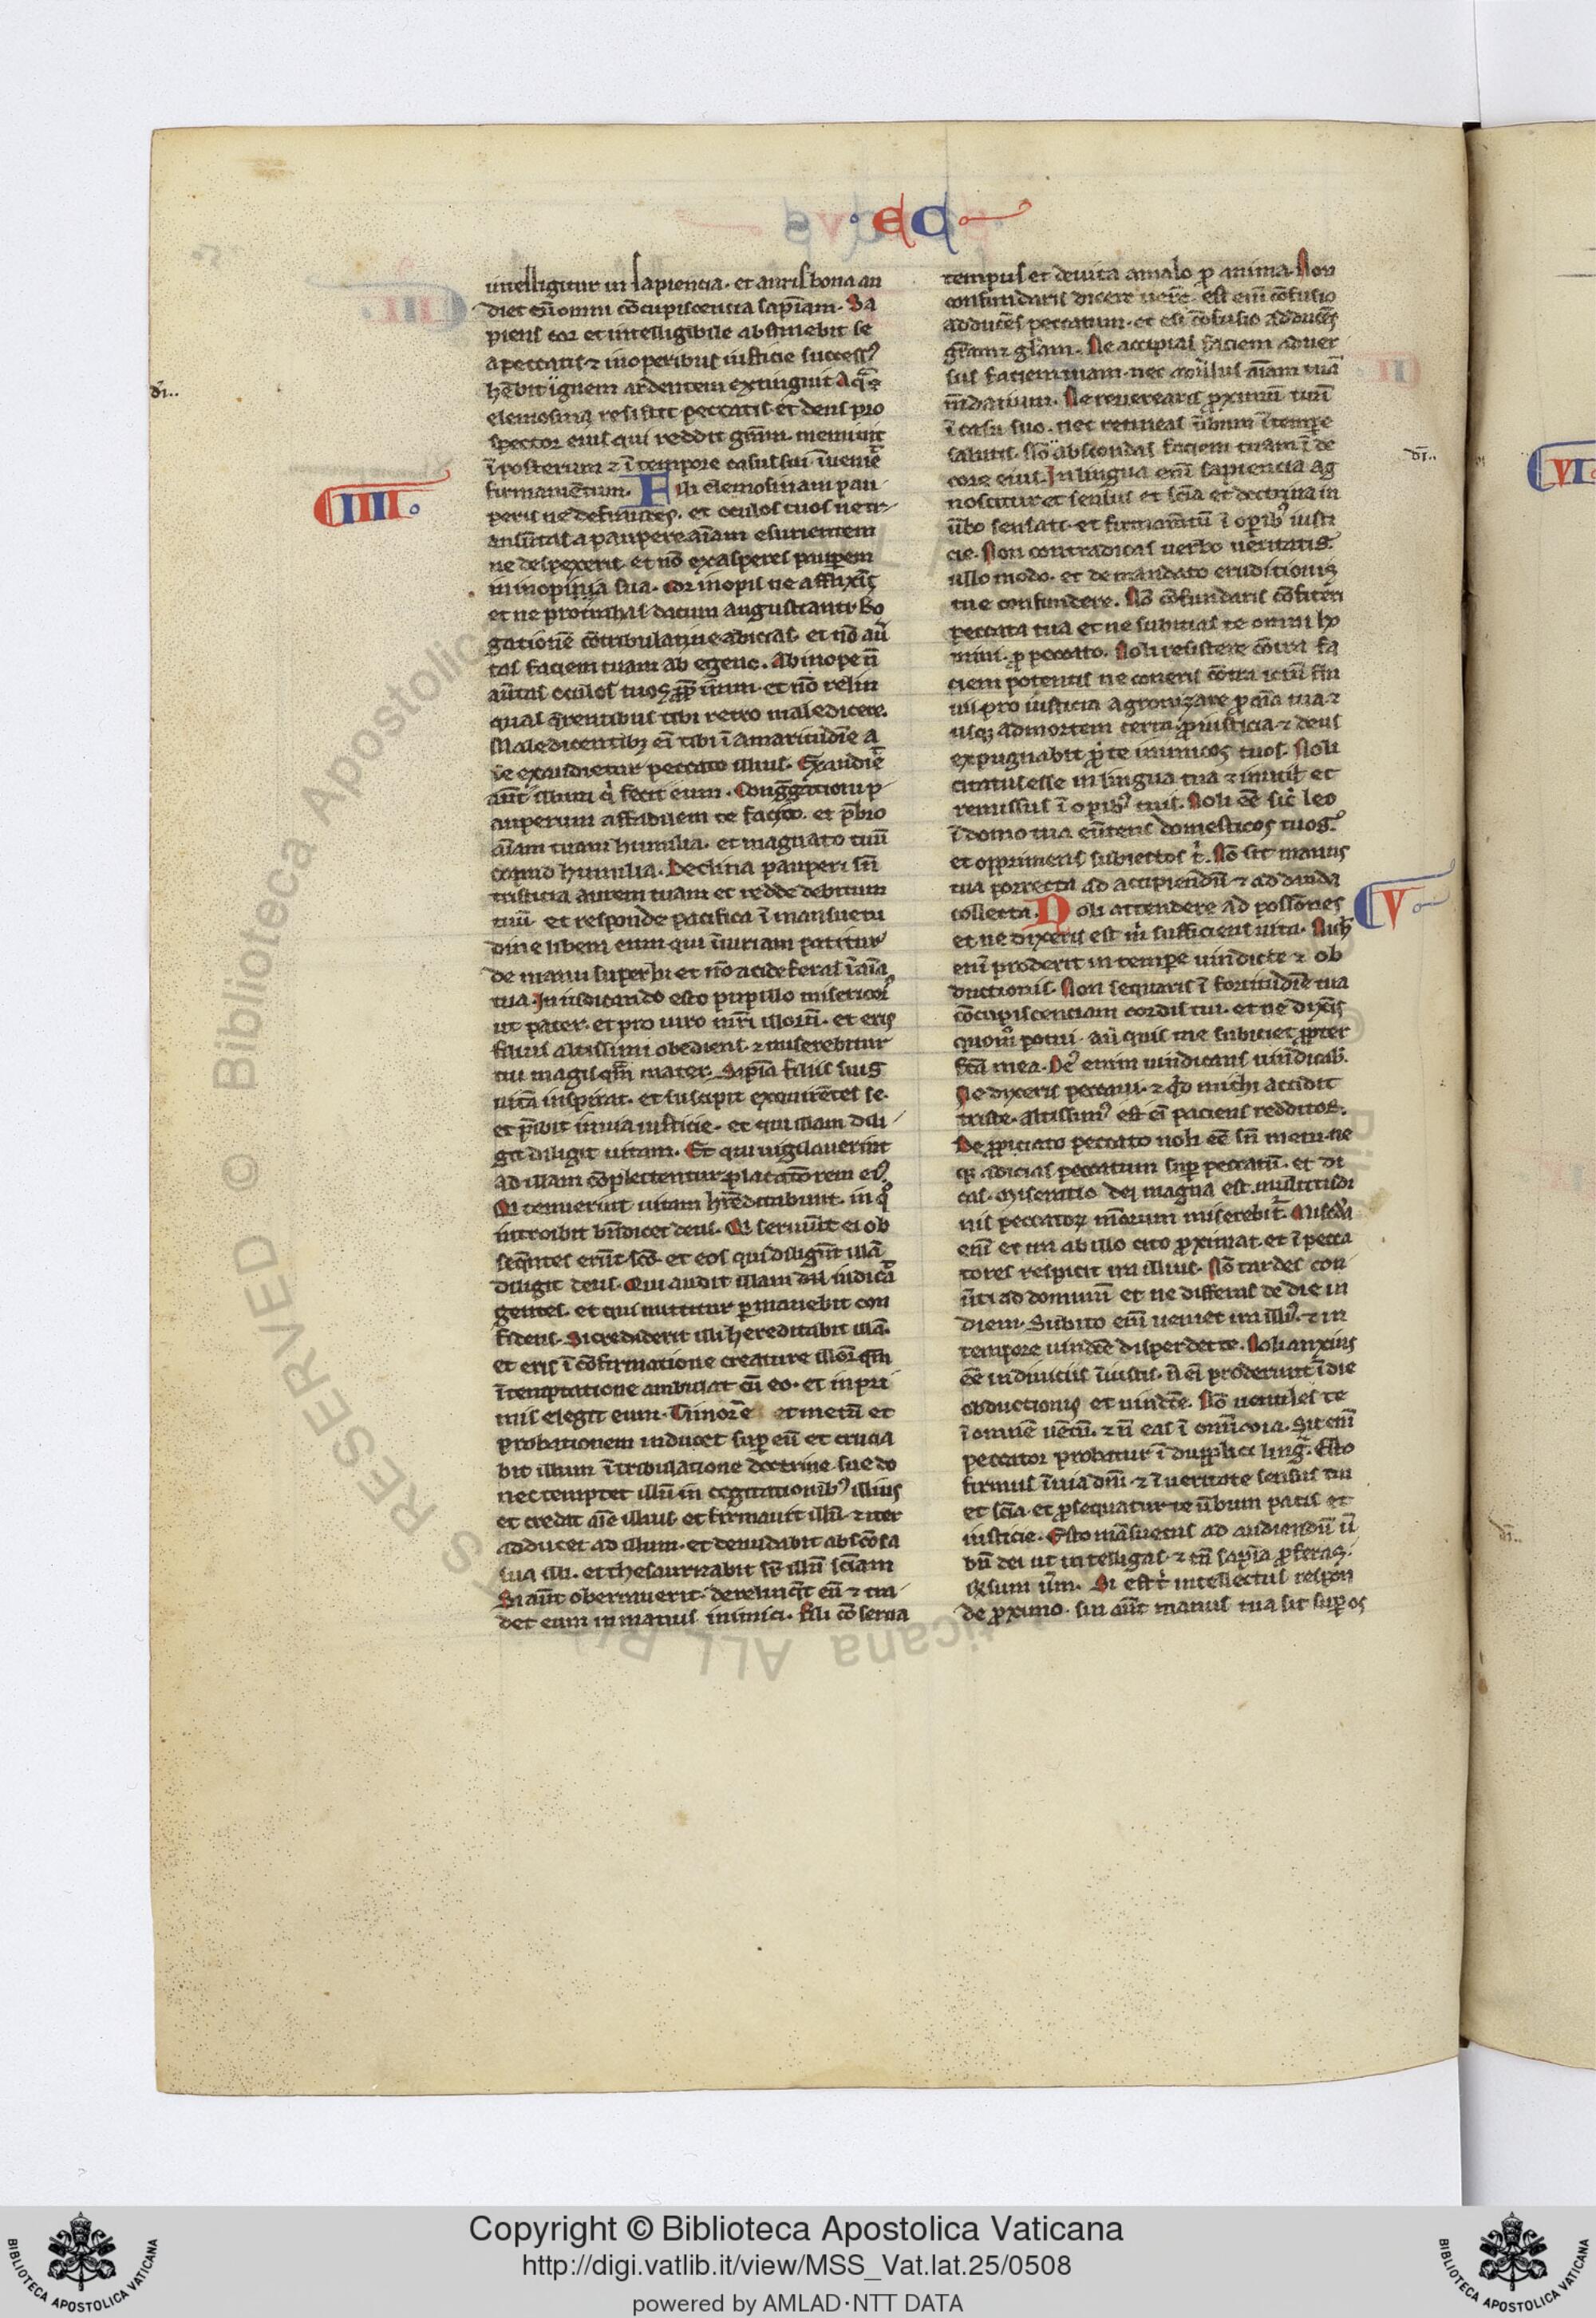 ec
intelligitur in sapiencia. et auris bona au
diet cū omni cōcupiscencia sapīam. Sa
piens cor et intelligibile abstinebit se
a peccatis. ⁊ in operibus iusticie success9
hēbit ignem ardentem extinguit aq̄ ⁊
elemosina resistit peccatis. et deus pro
spector eius qui reddit grām. meminit
ī posterum ⁊ ī tempore casus sui īueniē
firmamētum. Fili elemosinam pau
IIII
peris ne defraudes. et oculos tuos ne tr
ansūtas a paupere aīam esurientem
ne despexeris. et nō exasperes paupem
in inopia sua. Cor inopis ne afflixīs
et ne protrahas datum angustianti Ro
gationē cōtribulati ne abicias. et nō aū
tas faciem tuam ab egeno. Ab inope ñ
aūtas oculos tuos ꝓp̄ iram. et nō relin
quas q̄rentibus tibi retro maledicere.
Maledicentibꝫ eī tibi ī amaritudīe a
īe exaudietur peccato illius. Exaudiē
aūt illum q̇ fecit eum. Congḡationi p
auperum affabilem te facito. et p̄bro
aīam tuam humilia. et magnato tuū
caput humilia. Declina pauperi sñ
tristicia aurem tuam et redde debitum
tuū. et responde pacifica ī mansuetu
dine libera eum qui iniuriam patitur
de manu superbi et nō acide feras ī aīa
tua. In iudicando esto pupillo misericorˢ
ut pater. et pro uiro mr̄i illorū. et eris
filius altissimi obediens. ⁊ miserebitur
tui magis q̄m mater. Sapīa filiis suis
uitā inspirat. et suscipit exquirētes se.
et p̄ibit in uia iusticie. et qui illam dili
git diligit uitam. Et qui uigilauerint
ad illam cōplectentur placatōrem ei9
Qi tenuerint uitam hr̄editabunt. in q̊
introibit bn̄dicet deus. Qi seruiūt ei ob
seq̄ntes erūt sc̄o. et eos qui diligūt illā
diligit deus. Qui audit illam
gentes. et qui intuitur ꝑmanebit con
fidens. Si crediderit illi hereditabit illā.
et eris ī cōfirmatione creature illorū q̄m
ī temptatione ambulat cū eo. et in pri
mis elegit eum. Timorē et metū et
probationem inducet suꝑ eū et crucia
bit illum ī tribulatione doctrine sue do
nec temptet illū in cogitationib9 illius
et credat aīe illius. et firmauit illū. ⁊ iter
adducet ad illum. et denudabit abscōsa
sua illi. et thesaurizabit sr̄ illū sciam
Si aūt oberrauerit. derelinq̄t eū ⁊ tra
det eum in manus inimici. Fili cōserua
tempus et deuita a malo ꝓ anima. Non
confundaris dicere uerē. est eni cōfusio
adducēs peccatum. et est cōfusio adducēs
grām ⁊ glām. Ne accipias faciem aduer
sus faciem tuam. nec aduersus aīam tuā
m̄datium. Ne reuerearis ꝓximū tuū
ī casu suo. nec retineas ūbum ī tempe
salutis. Nō abscondas faciem tuam ī de
core eius. In lingua enī sapiencia ag
noscitur et sensus et scīa et doctrina in
ūbo sensati. et firmamtū ī opib9 iusti
cie. Non contradicas uerbo ueritatis.
ullo modo. et de mandato eruditionis
tue confundere. Nō cōfundaris cōfiteri
peccata tua et ne subicias te omni ho
mini. ꝓ peccato. Noli resistere cōtra fa
ciem potentis ne coneris cōtra ictū flu
uii. pro iusticia agonizare ꝓ aīa tua ⁊
usqꝫ ad mortem certa ꝓ iusticia. ⁊ deus
expugnabit ꝓ te inimicos tuos. Noli
citatus esse in lingua tua ⁊ inutil̄ et
remissus ī opib9 tuis. Noli eē sic̄ leo
ī domo tua eūtens domesticos tuos
et opprimens subiectos t̄. Nō sit manus
tua porrecta ad accipiendū. ⁊ ad danda
collecta. Noli attendere ad possōnes
V
et ne dixeris est m̄ sufficiens uita. Nich̄
enī proderit in tempe uindicte ⁊ ob
ductionis. Non sequaris ī fortitudīe tua
cōcupiscenciam cordis tui. et ne dixēis
quom̊ potui. aū quis me subiciet ꝓpter
fc̄a mea. De9 enim uindicans uindicab̄.
Ne dixeris peccaui. ⁊ q̇d michi accidit
triste. altissim9 est eī paciens redditor.
De ꝓpiciato peccato noli eē sñ metu. ne
qꝫ adicias peccatum suꝑ peccatū. et di
cas. Miseratio dei magna est. multitudi
nis peccatoꝝ meorum miserebit̄.
enī et ira ab illo cito ꝓximat. et ī pecca
tores respicit ira illius. Nō tardes con
ūti ad dominū et ne differas de die in
diem. Subito enī ueniet ira illi9. ⁊ in
tempore uindēe disperdet te. Noli anxius
eē in diuiciis īiustis. ñ eī proderunt ī die
obductionis et uindcē. Nō uentiles te
ī omnē uētū. ⁊ ñ eas ī omnē uia. Sic enī
peccator probatur ī duplici linḡ. Esto
firmus ī uia dnī. ⁊ ī ueritate sensus tui
et scīa. et ꝓsequatur te ūbum pacis et
iusticie. Esto māsuetus ad audiendū ū
bū dei ut intelligas. ⁊ cū sapīa ꝓferas
rn̄sum ūm. Si est t̄ intellectus respon
de ꝓximo. sin aūt manus tua sit suꝑ os
VI
Copyright © Biblioteca Apostolica Vaticana
http://digi.vatlib.it/view/MSS_Vat.lat.25/0508
powered by AMLAD·NTT DATA
BIBLIOTECA APOSTOLICA VATICANA
BIBLIOTECA APOSTOLICA VATICANA